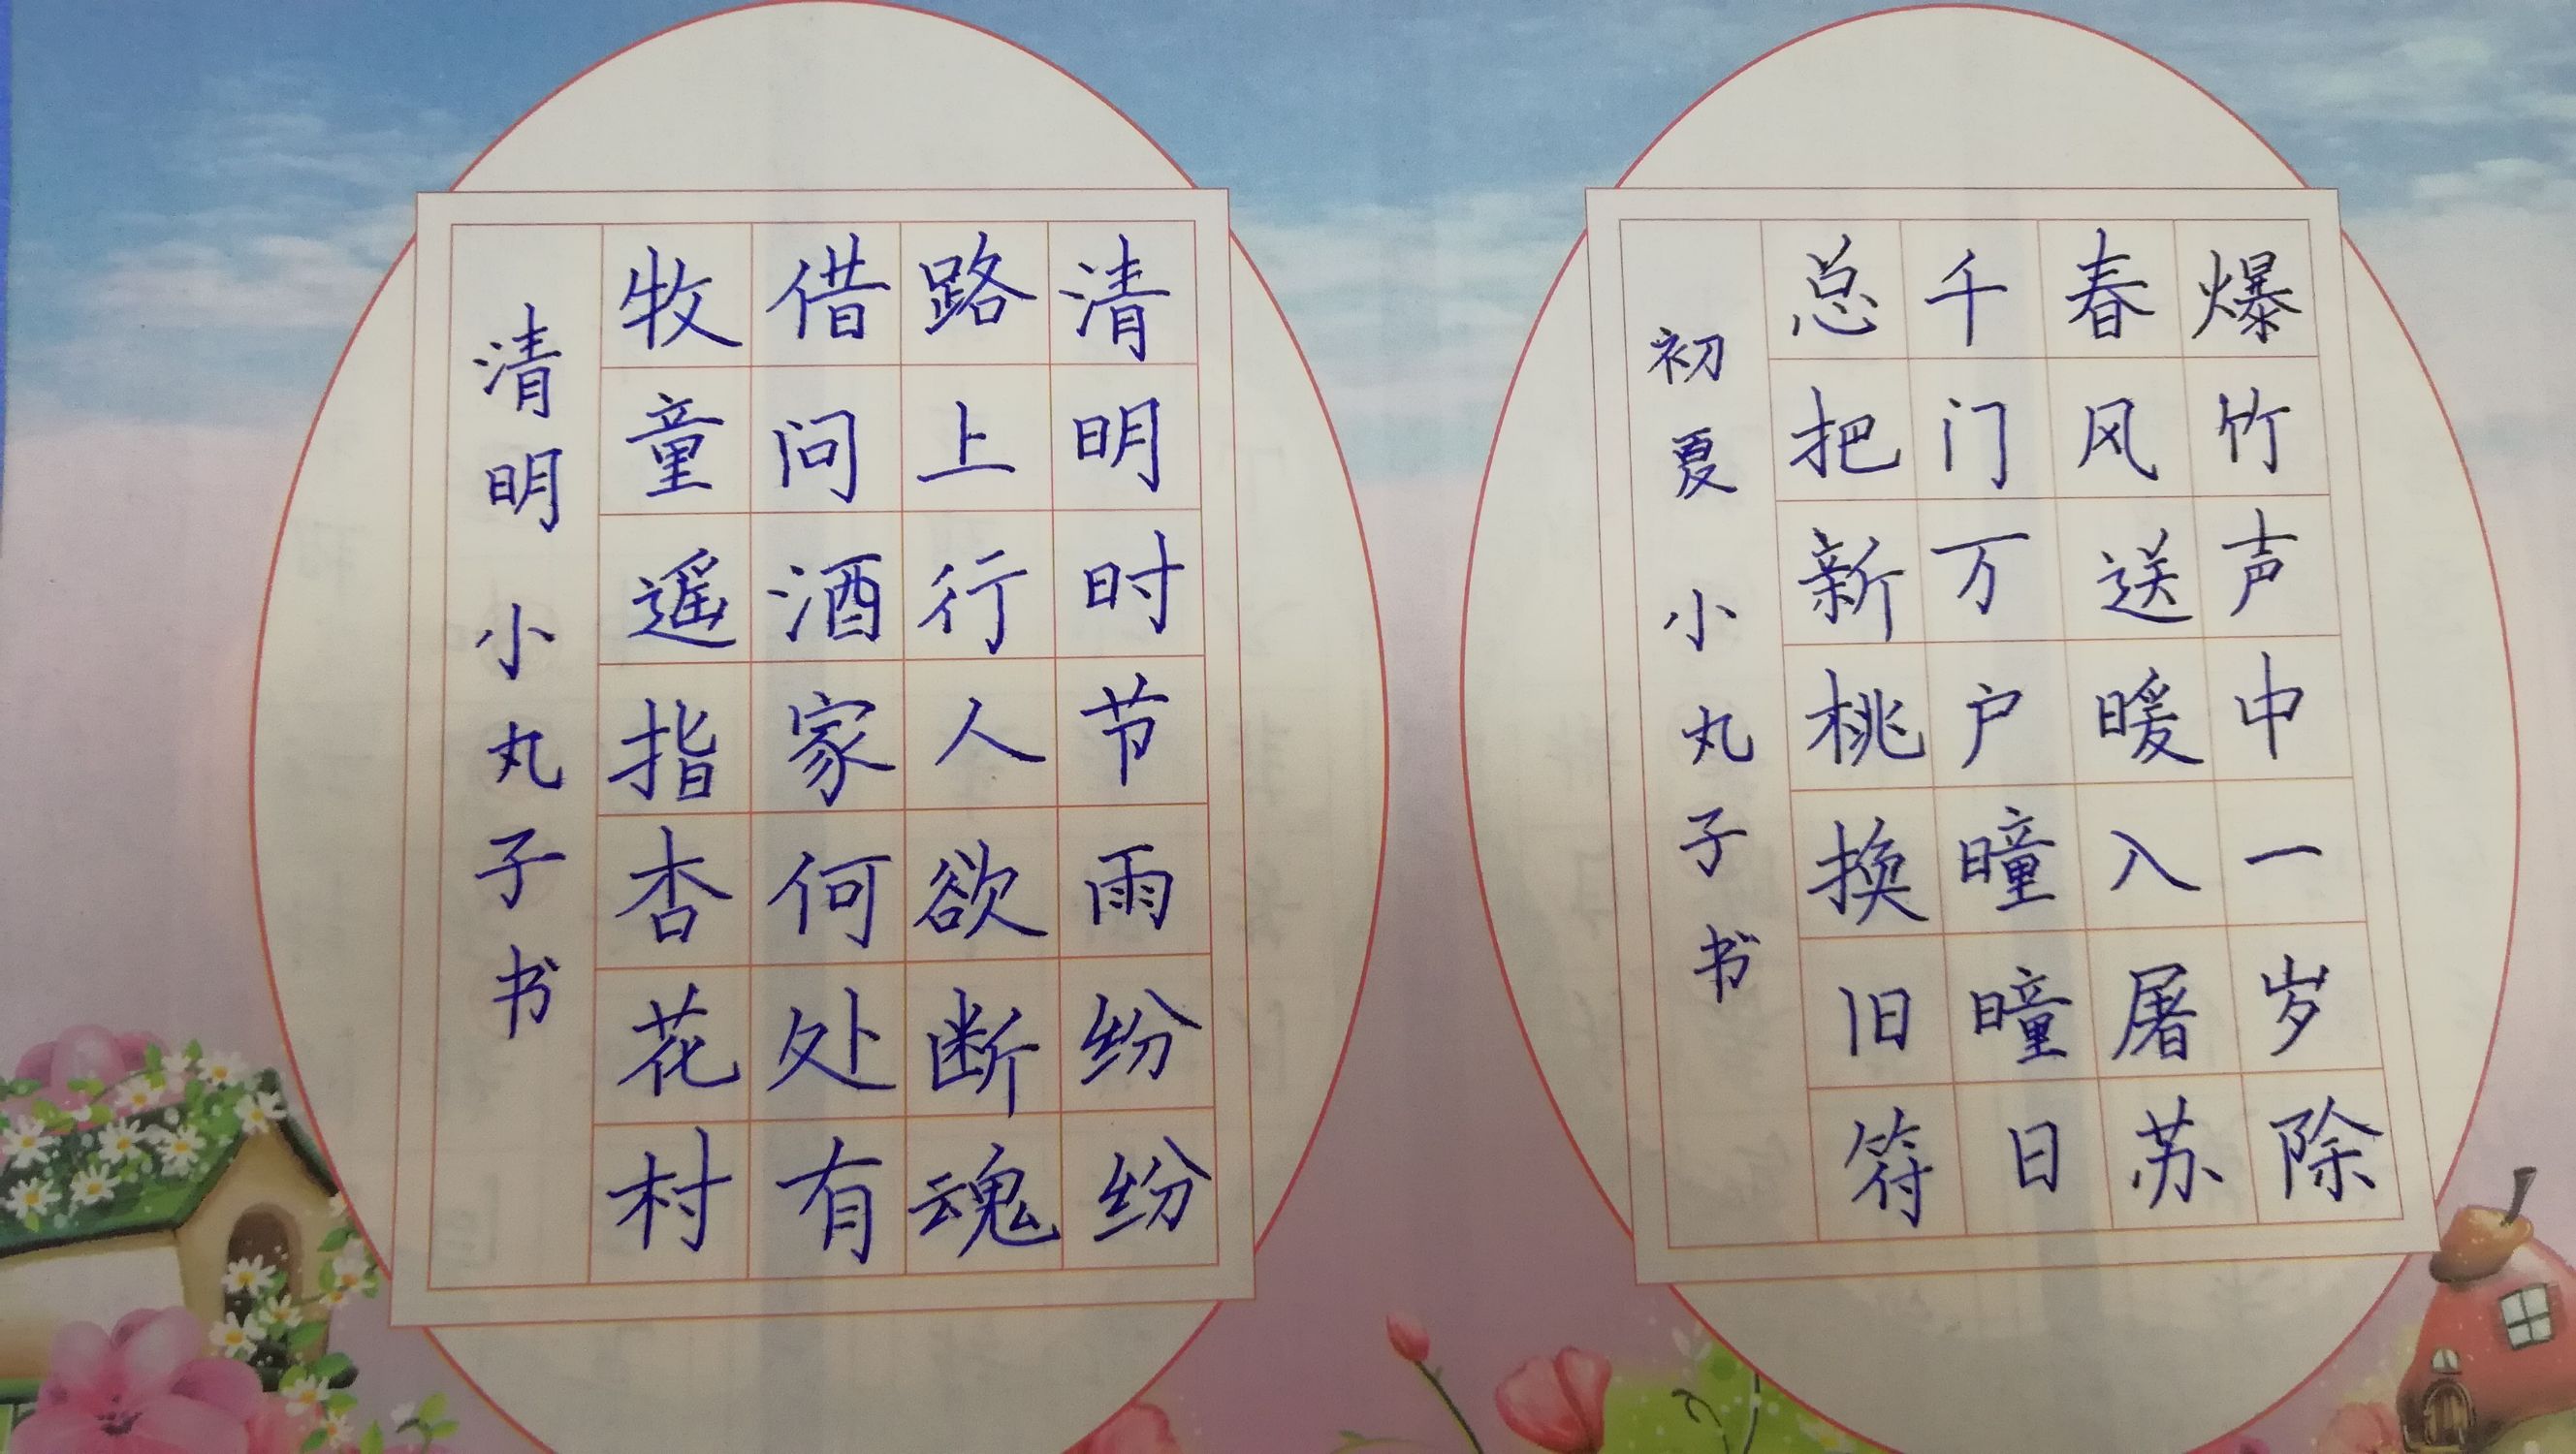 爆竹声中一岁除
春风送暖入屠苏
千门万户曈曈日
总把新桃换旧符
初夏 小丸子书
清明时节雨纷纷
路上行人欲断魂
借问酒家何处有
牧童遥指杏花村
清明 小丸子书